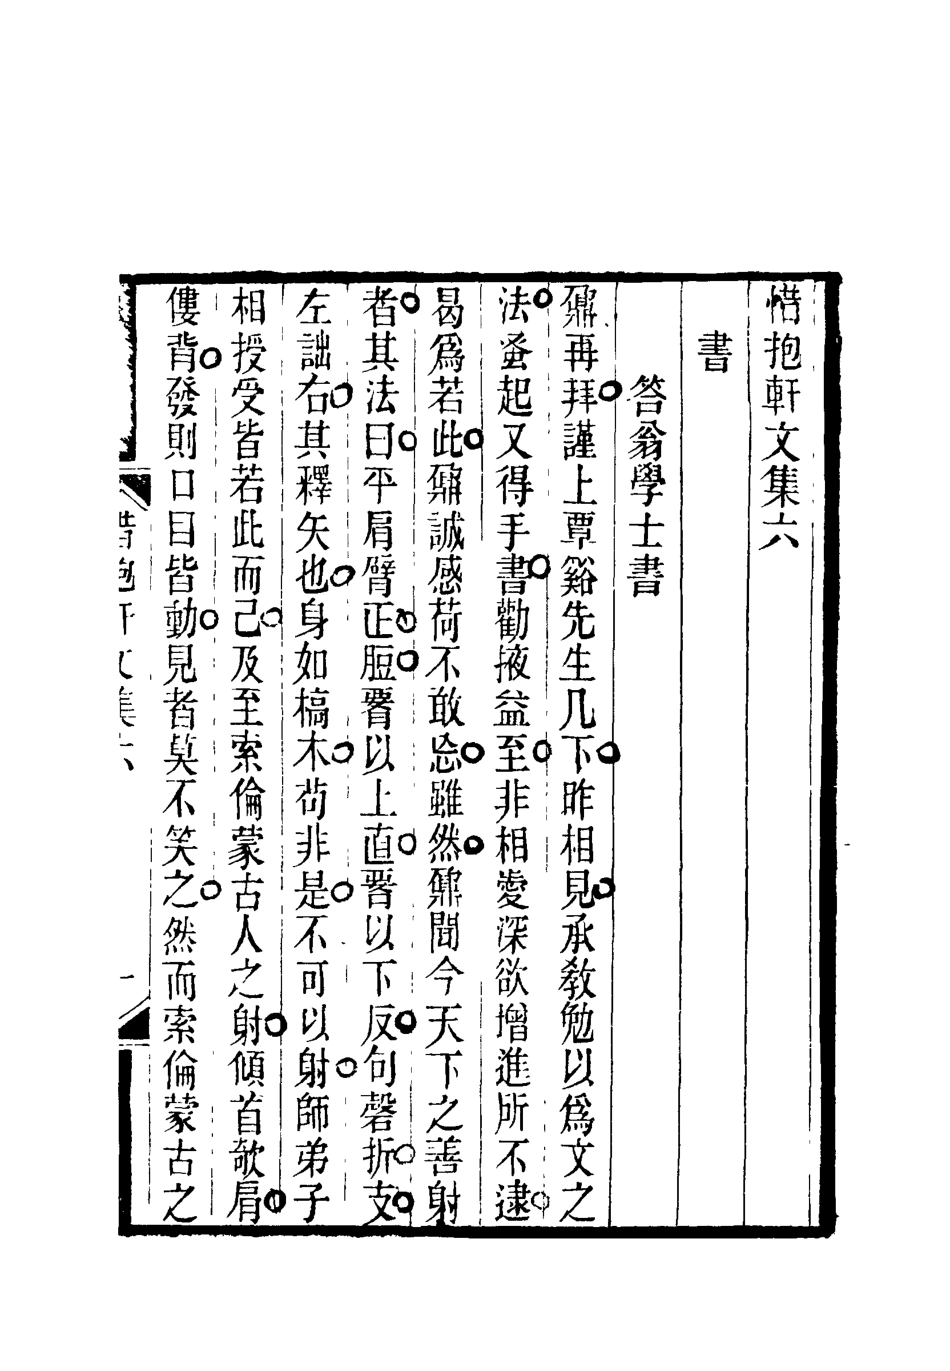 惜抱軒文集六
書
答翁學士書
鼐再拜謹上覃谿先生几下昨相見承敎勉以爲文之
法蚤起又得手書勸掖益至非相愛深欲增進所不逮
曷爲若此鼐誠感荷不敢忘雖然鼐聞今天下之善射
者其法曰平肩臂正脰䯊以上直䯊以下反句磬折支
左詘右其釋矢也身如槁木苟非是不可以射師弟子
相授受皆若此而已及至索倫蒙古人之射傾首欹肩
僂背發則口目皆動見者莫不笑之然而索倫蒙古之
惜抱軒文集六
一